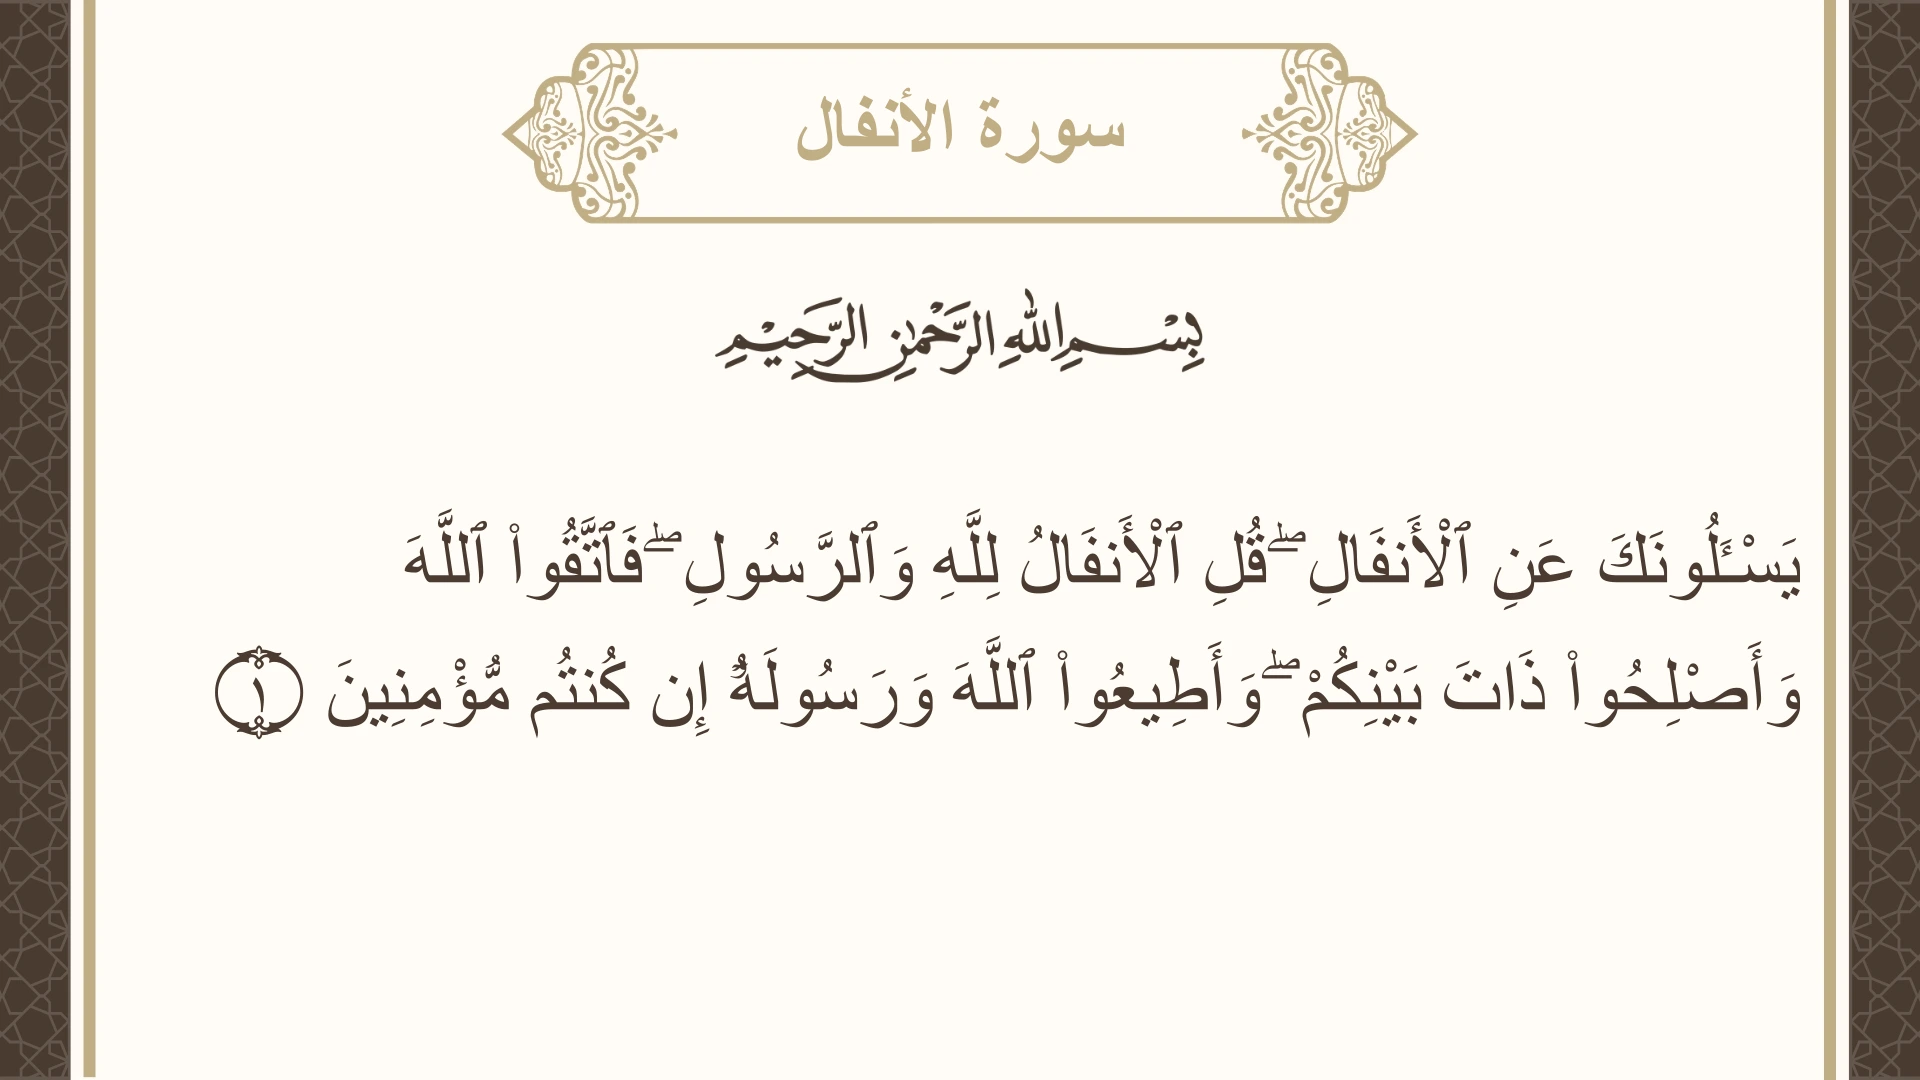 سورة الأنفال
بِسْمِ اللهِ الرَّحْمٰنِ الرَّحِيْمِ
يَسْـَٔلُونَكَ عَنِ ٱلْأَنفَالِ ۖ قُلِ ٱلْأَنفَالُ لِلَّهِ وَٱلرَّسُولِ ۖ فَٱتَّقُوا۟ ٱللَّهَ
وَأَصْلِحُوا۟ ذَاتَ بَيْنِكُمْ ۖ وَأَطِيعُوا۟ ٱللَّهَ وَرَسُولَهُۥٓ إِن كُنتُم مُّؤْمِنِينَ ١